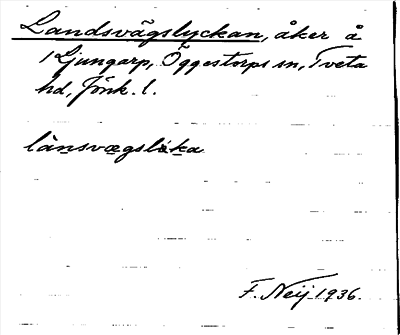 Landsvägslyckan, åker å
1 Ljungarp, Öggestorps sn, Tveta
hd, Jönk. l.
lànsvægslòka
F. Neij 1936.